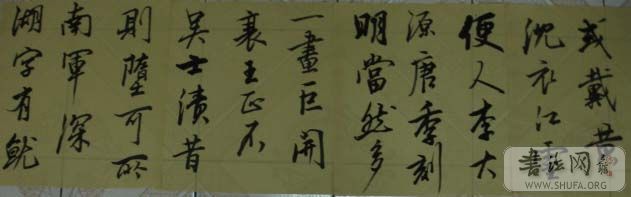 或戴昔
沈衣江雲
便人李大
源唐季刻
明當然多
一畫巨開
襄王正不
吴士漬昔
則墮可所
南軍深
湖字有魷
書法网
WWW.SHUFA.ORG